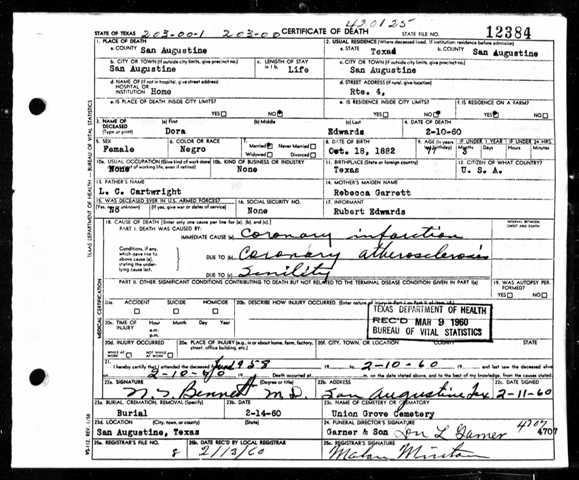 420125
STATE OF TEXAS 203-00-1 203-00 CERTIFICATE OF DEATH STATE FILE NO. 12384
1. PLACE OF DEATH 2. USUAL RESIDENCE (Where deceased lived. If institution: residence before admission)
a. COUNTY San Augustine a. STATE Texas b. COUNTY San Augustine
b. CITY OR TOWN (If outside city limits, give precinct no.) c. LENGTH OF STAY in 1 b. c. CITY OR TOWN (If outside city limits, give precinct no.)
San Augustine Life San Augustine
d. NAME OF (If not in hospital, give street address) HOSPITAL OR INSTITUTION Home d. STREET ADDRESS (If rural, give location) Rte. 4,
e. IS PLACE OF DEATH INSIDE CITY LIMITS? YES NO e. IS RESIDENCE INSIDE CITY LIMITS? YES NO f. IS RESIDENCE ON A FARM? YES NO
3. NAME OF DECEASED (Type or print) (a) First (b) Middle (c) Last 4. DATE OF DEATH
Dora Edwards 2-10-60
5. SEX 6. COLOR OR RACE 7. Married Never Married Widowed Divorced 8. DATE OF BIRTH 9. AGE (In years last birthday) IF UNDER 1 YEAR IF UNDER 24 HRS.
Female Negro Oct. 18, 1882 77 3
10a. USUAL OCCUPATION (Give kind of work done during most of working life, even if retired) 10b. KIND OF BUSINESS OR INDUSTRY 11. BIRTHPLACE (State or foreign country) 12. CITIZEN OF WHAT COUNTRY?
None None Texas U. S. A.
13. FATHER'S NAME 14. MOTHER'S MAIDEN NAME
L. C. Cartwright Rebecca Garrett
15. WAS DECEASED EVER IN U.S. ARMED FORCES? 16. SOCIAL SECURITY NO. 17. INFORMANT
(Yes, no, or unknown) (If yes, give war or dates of service)
No None Rubert Edwards
18. CAUSE OF DEATH [Enter only one cause per line for (a), (b), and (c).] INTERVAL BETWEEN ONSET AND DEATH
PART I. DEATH WAS CAUSED BY:
IMMEDIATE CAUSE (a) Coronary infarction
Conditions, if any, which gave rise to above cause (a), stating the underlying cause last.
DUE TO (b) Coronary atherosclerosis
DUE TO (c) Senility
PART II. OTHER SIGNIFICANT CONDITIONS CONTRIBUTING TO DEATH BUT NOT RELATED TO THE TERMINAL DISEASE CONDITION GIVEN IN PART I(a) 19. WAS AUTOPSY PERFORMED? YES NO
20a. ACCIDENT SUICIDE HOMICIDE 20b. DESCRIBE HOW INJURY OCCURRED.
TEXAS DEPARTMENT OF HEALTH
REC'D MAR 9 1960
BUREAU OF VITAL STATISTICS
20c. TIME OF INJURY Hour Month Day Year a.m. p.m.
20d. INJURY OCCURRED WHILE AT WORK NOT WHILE AT WORK 20e. PLACE OF INJURY (e.g., in or about home, farm, factory, street, office building, etc.) 20f. CITY, TOWN, OR LOCATION COUNTY STATE
21. I hereby certify that I attended the deceased from 1958 to 2-10-60 and last saw the deceased alive
on 2-10-60 Death occurred at m. on the date stated above, and to the best of my knowledge, from the causes stated.
22a. SIGNATURE (Degree or title) 22b. ADDRESS 22c. DATE SIGNED
Bennett M D. San Augustine Tex 2-11-60
23a. BURIAL, CREMATION, REMOVAL (Specify) 23b. DATE 23c. NAME OF CEMETERY OR CREMATORY
Burial 2-14-60 Union Grove Cemetery
23d. LOCATION (City, town, or county) (State) 24. FUNERAL DIRECTOR'S SIGNATURE
San Augustine, Texas Garner & Son L Garner 4707 4707
25a. REGISTRAR'S FILE NO. 25b. DATE REC'D BY LOCAL REGISTRAR 25c. REGISTRAR'S SIGNATURE
8 2/13/60
TEXAS DEPARTMENT OF HEALTH - BUREAU OF VITAL STATISTICS
MEDICAL CERTIFICATION
VS-112 REV. 1/58